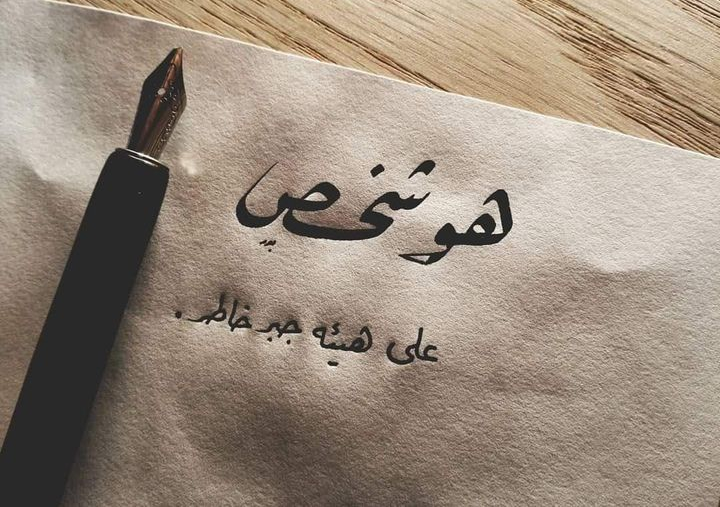 هو شخص
على هيئه جبر خاطر.